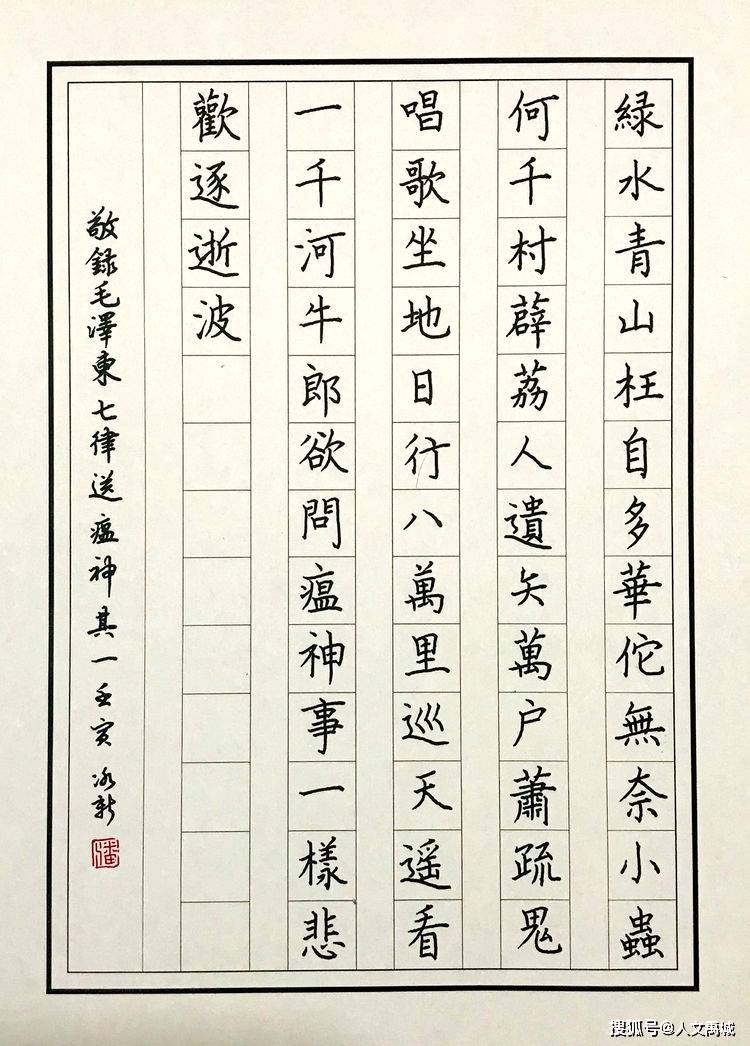 緑水青山枉自多華佗無奈小蟲
何千村薜荔人遺矢萬户蕭疏鬼
唱歌坐地日行八萬里巡天遥看
一千河牛郎欲問瘟神事一樣悲
歡逐逝波
敬録毛澤東七律送瘟神其一壬寅冰新
潘
搜狐号@人文禹城